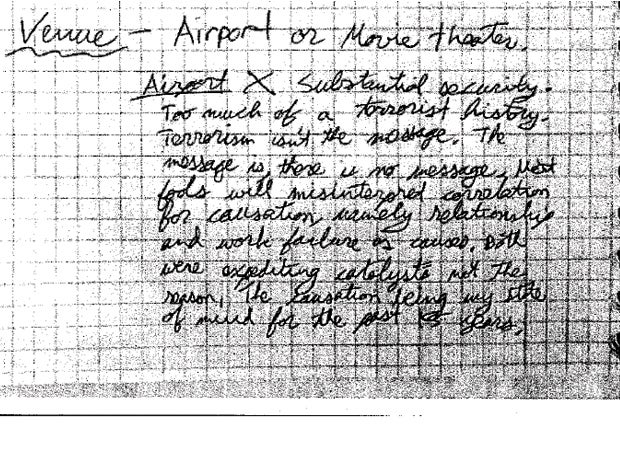 Venue – Airport or Movie theater.
Airport X Substantial security.
Too much of a terrorist history.
Terrorism isn't the message. The
message is, there is no message. Most
fools will misinterpret correlation
for causation, namely relationship
and work failure as causes. Both
were expediting catalysts not the
reason. The causation being my state
of mind for the past 15 years.